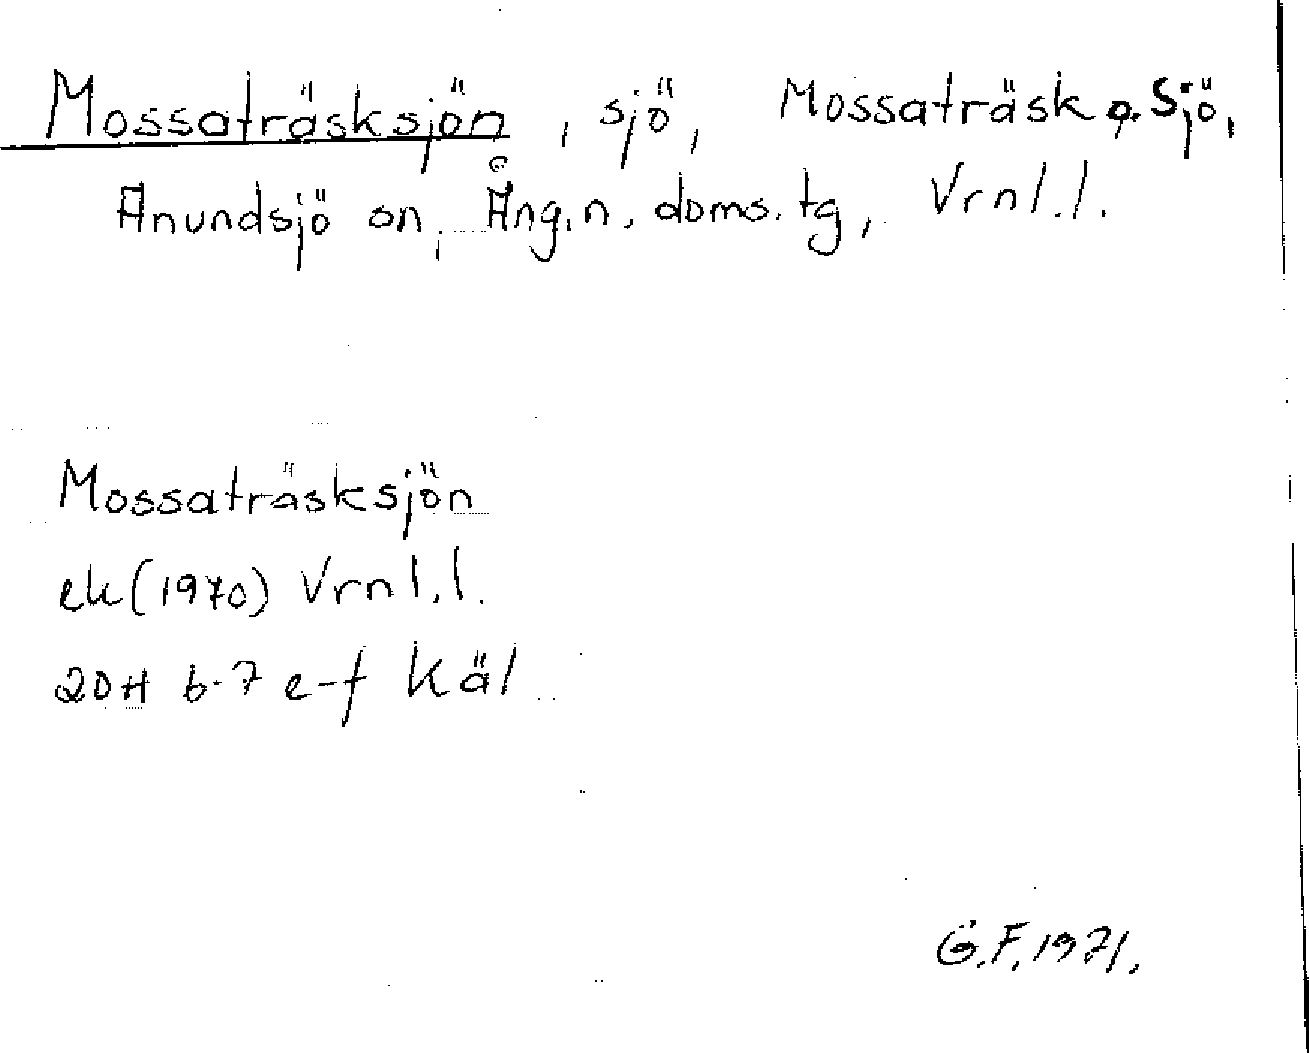 Mossaträsksjön, sjö, Mossaträsk o. Sjö,
Anundsjö sn, Ång.n. doms. tg, Vrnl.l.
Mossaträsksjön
ek (1970) Vrnl.l.
20H 6-7 e-f Käl
G.F. 1971.